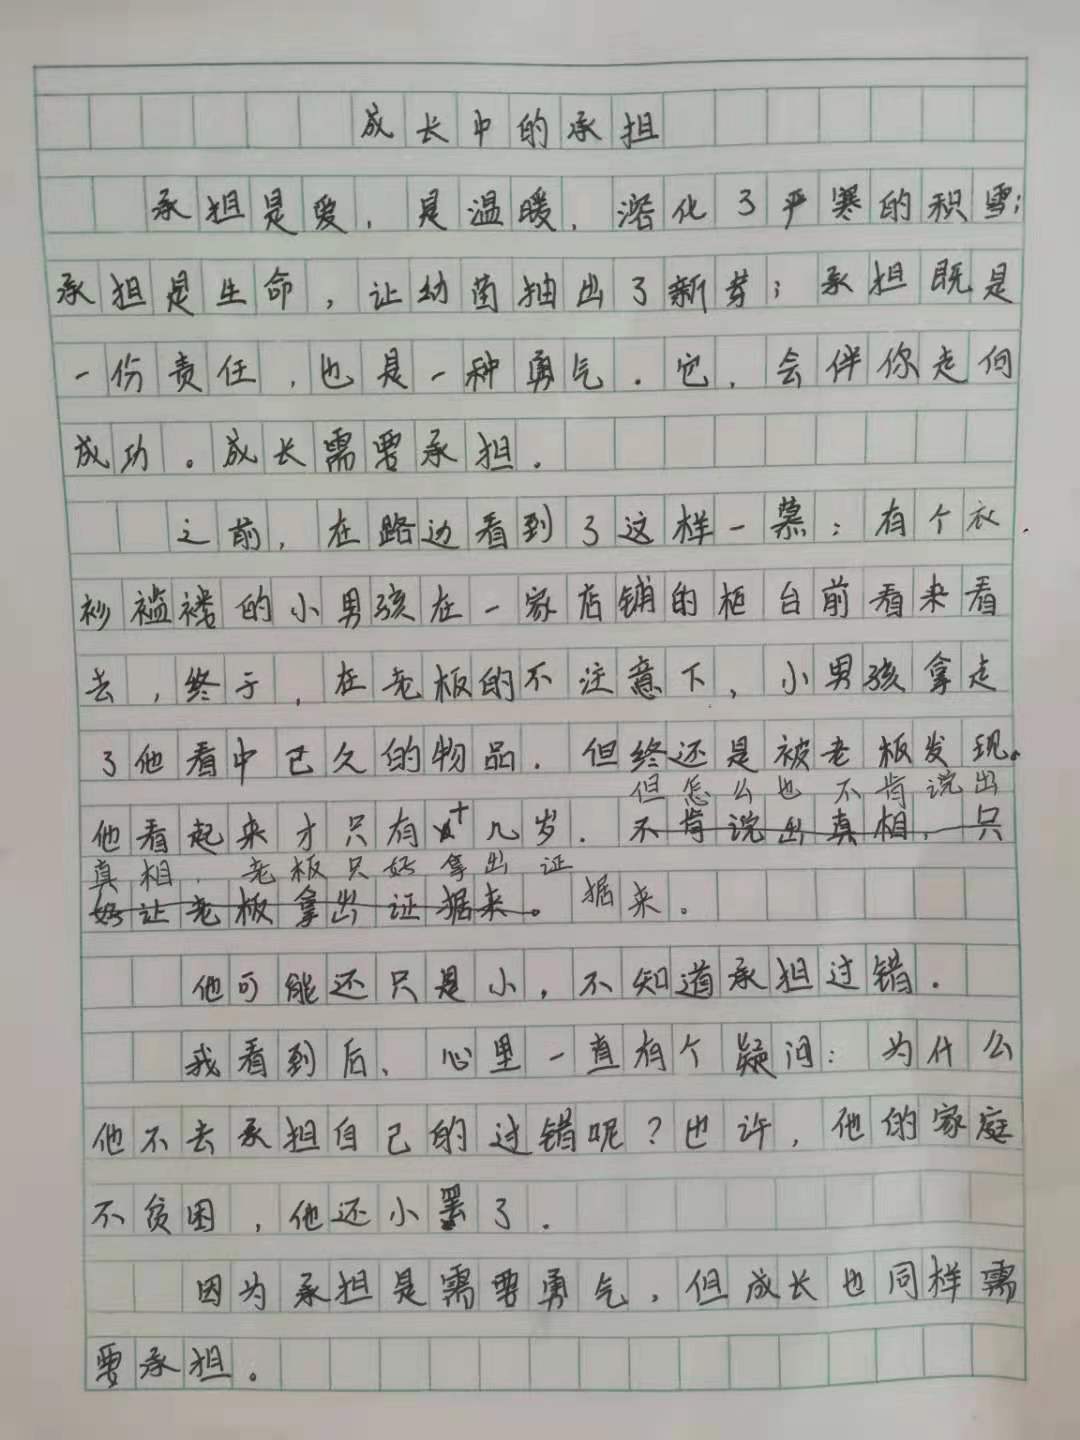 成长中的承担
承担是爱，是温暖，溶化了严寒的积雪；
承担是生命，让幼苗抽出了新芽；承担既是
一份责任，也是一种勇气．它，会伴你走向
成功。成长需要承担．
之前，在路边看到了这样一慕：有个衣
衫褴褛的小男孩在一家店铺的柜台前看来看
去，终于，在老板的不注意下，小男孩拿走
了他看中已久的物品．但终还是被老板发现。
但怎么也不肯说出
他看起来才只有十几岁．不肯说出真相，只
真相．老板只好拿出证
好让老板拿出证据来。据来．
他可能还只是小，不知道承担过错．
我看到后、心里一直有个疑问：为什么
他不去承担自己的过错呢？也许，他的家庭
不贫困，他还小罢了．
因为承担是需要勇气，但成长也同样需
要承担。